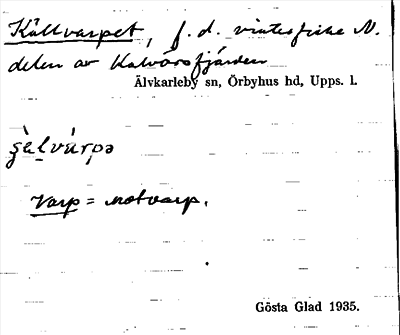 Källvarpet, f. d. vinterfiske N.
delen av Kalvörsfjärden
Älvkarleby sn, Örbyhus hd, Upps. l.
varp = notvarp.
Gösta Glad 1935.